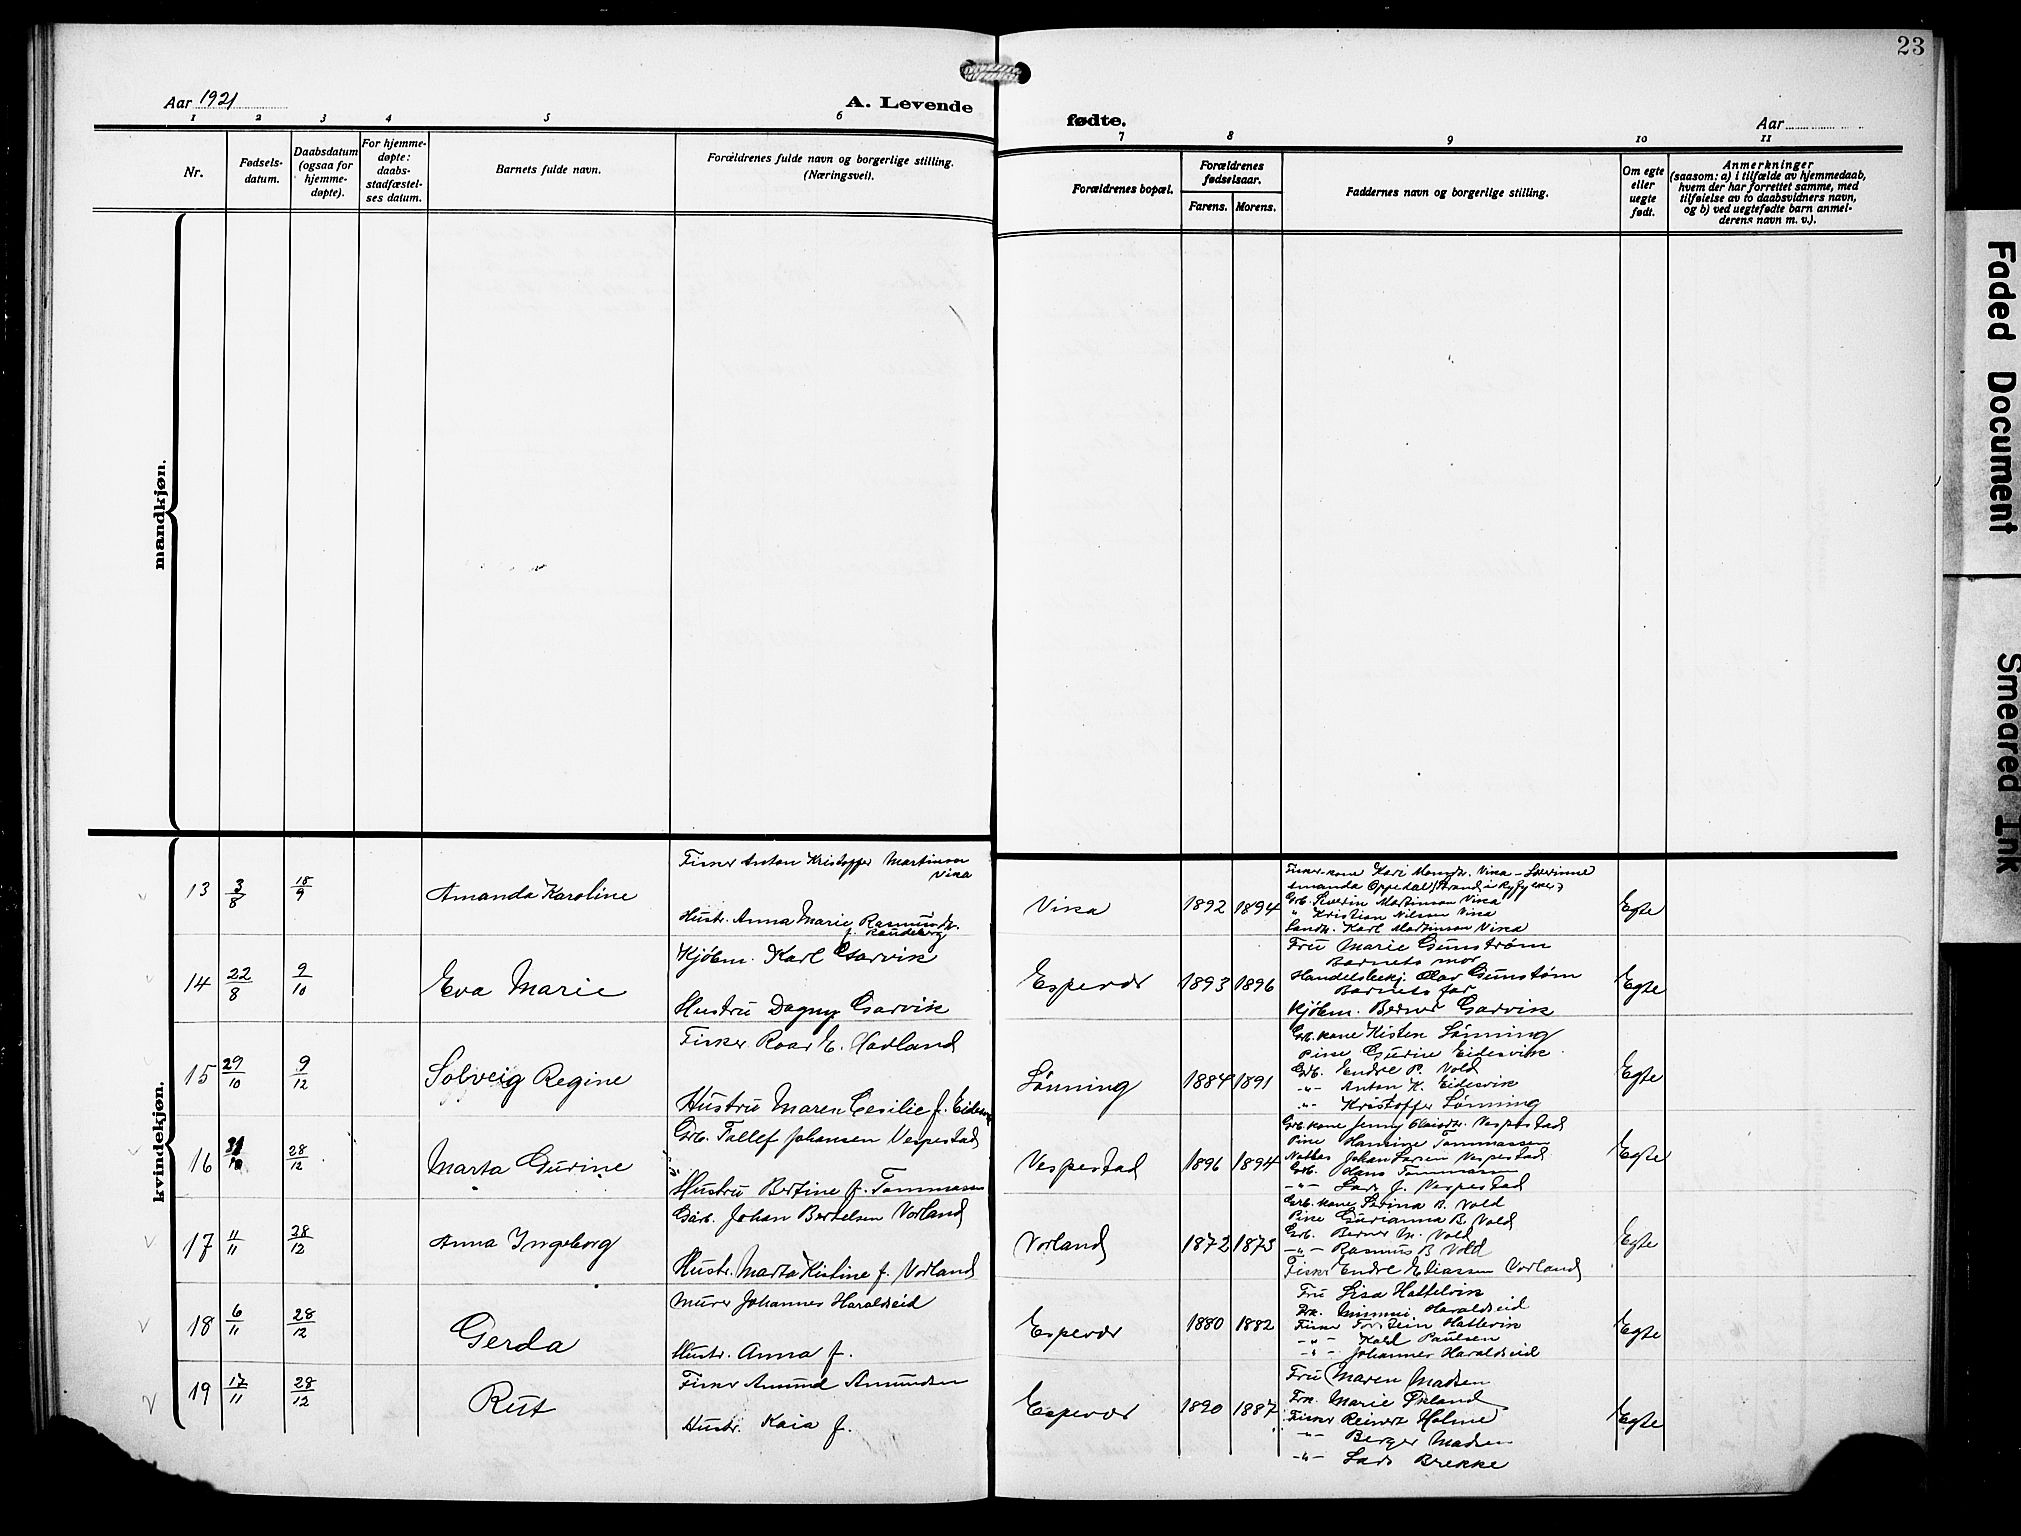 23
Aar 1921
A. Levende
fødte.
Aar
1 2 3 4 5 6 7 8 9 10 11
Nr.
Fødsels-
datum.
Daabsdatum
(ogsaa for
hjemme-
døpte).
For hjemme-
døpte:
daabs-
stadfæstel-
ses datum.
Barnets fulde navn.
Forældrenes fulde navn og borgerlige stilling.
(Næringsvei).
Forældrenes bopæl.
Forældrenes
fødselsaar.
Farens. Morens.
Faddernes navn og borgerlige stilling.
Om egte
eller
uegte
født.
Anmerkninger
(saasom: a) i tilfælde av hjemmedaab,
hvem der har forrettet samme, med
tilføielse av to daabsvidners navn,
og b) ved uegtefødte barn anmel-
derens navn m. v.).
mandkjøn.
kvindekjøn.
13 3/8 18/9 Amanda Karoline
Fisker Anton Kristoffer Martinson
Vika
Hust. Anna Marie Rasmusdr.
f. Raudeberg
Vika 1892 1894
Fisker-kone Kari Vika
Amanda Oppedal
Grb. Severin Martinson Vika
" Kristian Nilsen Vika
Karl Martinson Vika
Egte
14 22/8 9/10 Eva Marie
Kjøbm. Karl Garvik
Hustru Dagny Garvik
Espevær 1893 1896
Fru Marie Gunstrøm
Barnets mor
Handelsbetj. Olav Gunstøm
Barnets far
Kjøbm. Berner Garvik
Egte
15 29/10 9/12 Solveig Regine
Fisker Roar E. Hovland
Hustru Maren Cesilie f. Eidesvik
Lønning 1884 1891
Grb. kone Kisten Lønning
Pike Gurine Eidesvik
Grb. Endre P. Vold
-"- Anton K. Eidesvik
-"- Kristoffer Lønning
Egte
16 31/10 28/12 Marta Gurine
Grb. Tollef Johansen Vespestad
Hustru Bertine f. Tommasen
Vespestad 1896 1894
Grb. kone Jenny Vespestad
Pike Hansine Tommassen
Johan Larsen Vespestad
Grb. Hans Tommassen
-"- Lars J. Vespestad
Egte
17 11/11 28/12 Anna Ingeborg
Garb. Johan Bertelsen Vorland
Hustr. Marta Kistine f. Vorland
Vorland 1872 1873
Grb. kone Serina B. Vold
Pike Gurianna B. Vold
Grb. Berner M. Vold
-"- Rasmus B. Vold
Fisker Endre Eliassen Vorland
Egte
18 6/11 28/12 Gerda
Murer Johannes Haraldseid
Hustr. Anna f.
Espevær 1880 1882
Fru Lisa Hattelvik
Frk. Mimmi Haraldseid
Fisker Torstein Hattevik
-"- Kold Paulsen
-"- Johannes Haraldseid
Egte
19 17/11 28/12 Rut
Fisker Amund Amundsen
Hustr. Kaia f.
Espevær 1890 1887
Fru Maren Madsen
Frk. Marie Økland
Fisker Reinert Holme
-"- Berger Madsen
-"- Lars Brekke
Egte
Faded Document
Smeared Ink